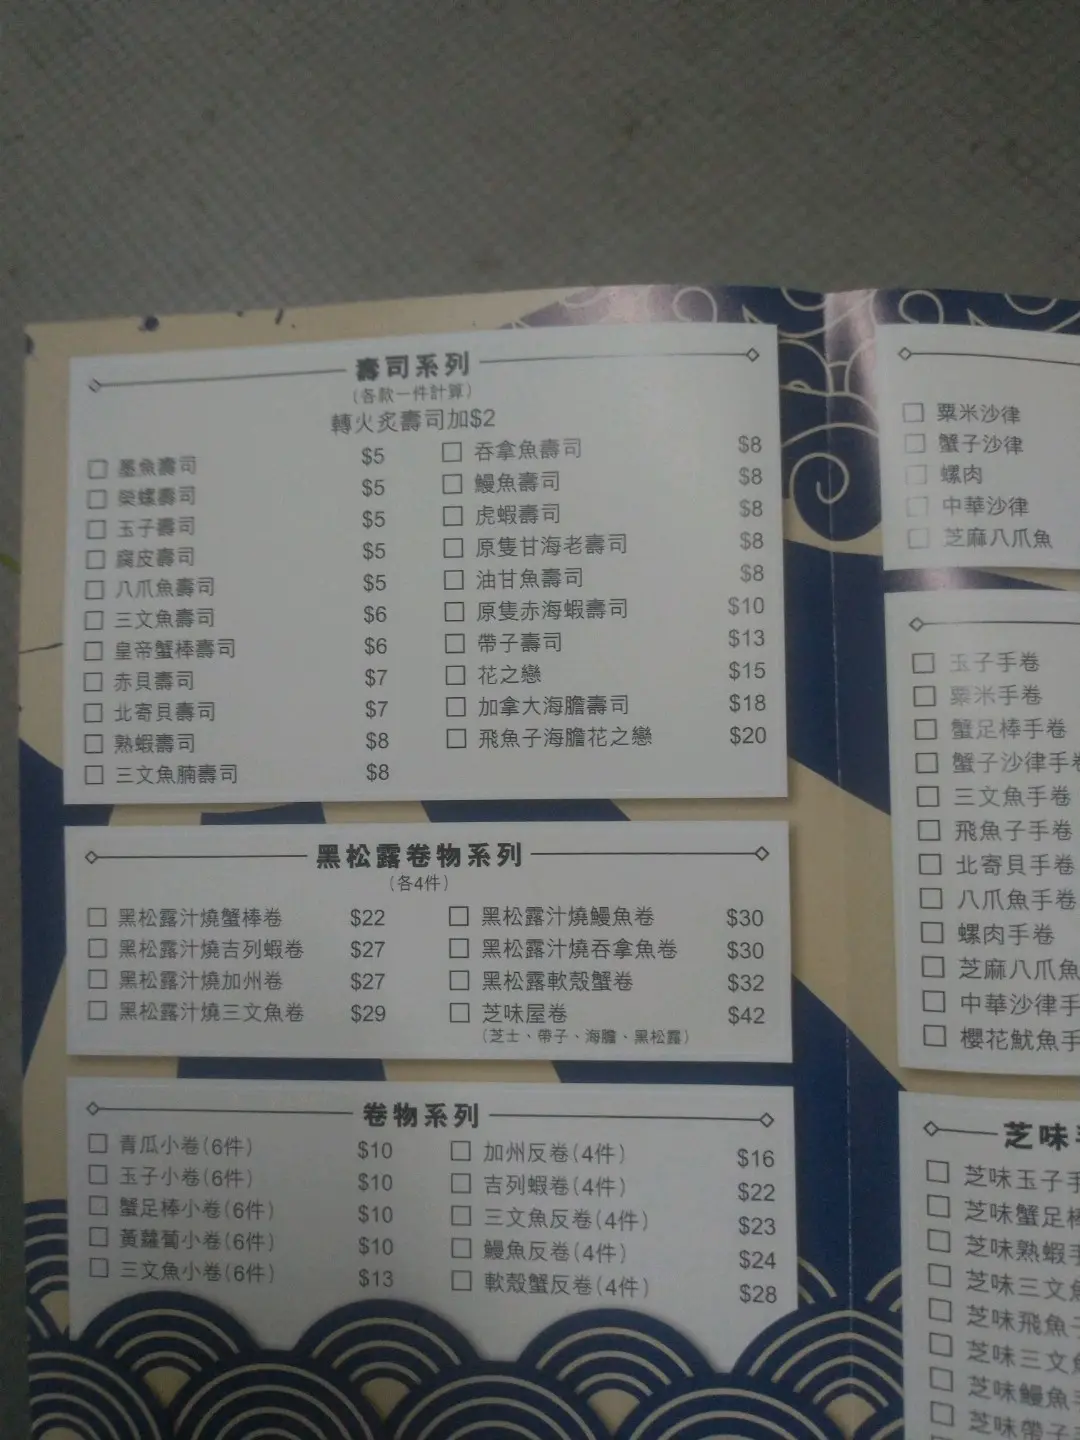 壽司系列
(各款一件計算)
轉火炙壽司加$2
墨魚壽司 $5
榮螺壽司 $5
玉子壽司 $5
腐皮壽司 $5
八爪魚壽司 $5
三文魚壽司 $6
皇帝蟹棒壽司 $6
赤貝壽司 $7
北寄貝壽司 $7
熟蝦壽司 $8
三文魚腩壽司 $8
吞拿魚壽司 $8
鰻魚壽司 $8
虎蝦壽司 $8
原隻甘海老壽司 $8
油甘魚壽司 $8
原隻赤海蝦壽司 $10
帶子壽司 $13
花之戀 $15
加拿大海膽壽司 $18
飛魚子海膽花之戀 $20
黑松露卷物系列
(各4件)
黑松露汁燒蟹棒卷 $22
黑松露汁燒吉列蝦卷 $27
黑松露汁燒加州卷 $27
黑松露汁燒三文魚卷 $29
黑松露汁燒鰻魚卷 $30
黑松露汁燒吞拿魚卷 $30
黑松露軟殼蟹卷 $32
芝味屋卷 $42
(芝士、帶子、海膽、黑松露)
卷物系列
青瓜小卷(6件) $10
玉子小卷(6件) $10
蟹足棒小卷(6件) $10
黃蘿蔔小卷(6件) $10
三文魚小卷(6件) $13
加州反卷(4件) $16
吉列蝦卷(4件) $22
三文魚反卷(4件) $23
鰻魚反卷(4件) $24
軟殼蟹反卷(4件) $28
粟米沙律
蟹子沙律
螺肉
中華沙律
芝麻八爪魚
玉子手卷
粟米手卷
蟹足棒手卷
蟹子沙律手卷
三文魚手卷
飛魚子手卷
北寄貝手卷
八爪魚手卷
螺肉手卷
芝麻八爪魚
中華沙律手
櫻花魷魚手
芝味
芝味玉子手
芝味蟹足棒
芝味熟蝦手
芝味三文魚
芝味飛魚子
芝味三文魚
芝味鰻魚手
芝味帶子